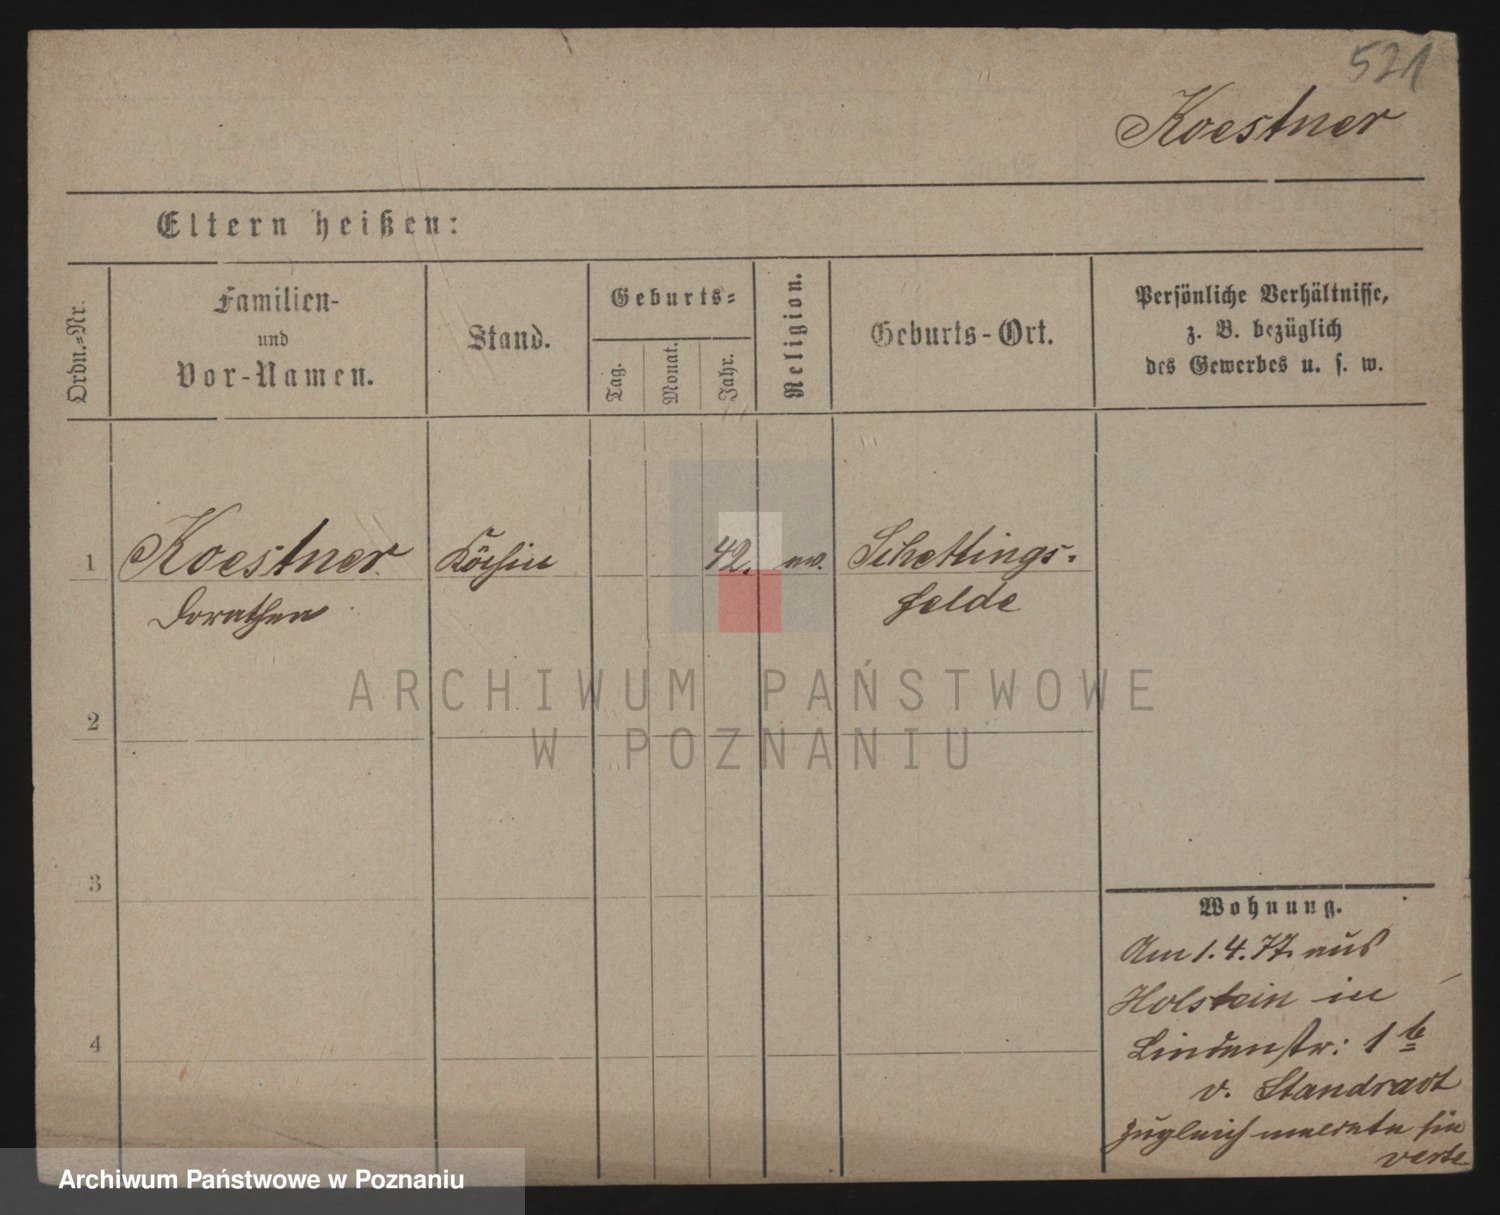 521
Koestner
Eltern heißen:
Ordn.=Nr.
Familien-
und
Vor-Namen.
Stand.
Geburts=
Tag.
Monat.
Jahr.
Religion.
Geburts-Ort.
Persönliche Verhältnisse,
z. B. bezüglich
des Gewerbes u. s. w.
1
Koestner
Dorathea
Köchin
42.
ev.
Schettings=
felde
2
3
4
Wohnung.
Am 1.4.77. aus
Holstein in
Lindenstr: 1 b
v. Standradt
zugleich meldete sie
ARCHIWUM PAŃSTWOWE
W POZNANIU
Archiwum Państwowe w Poznaniu